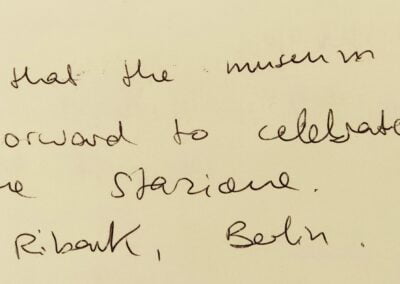 that the museum
orward to celebrate
ne Stazione.
Ribark, Berlin.